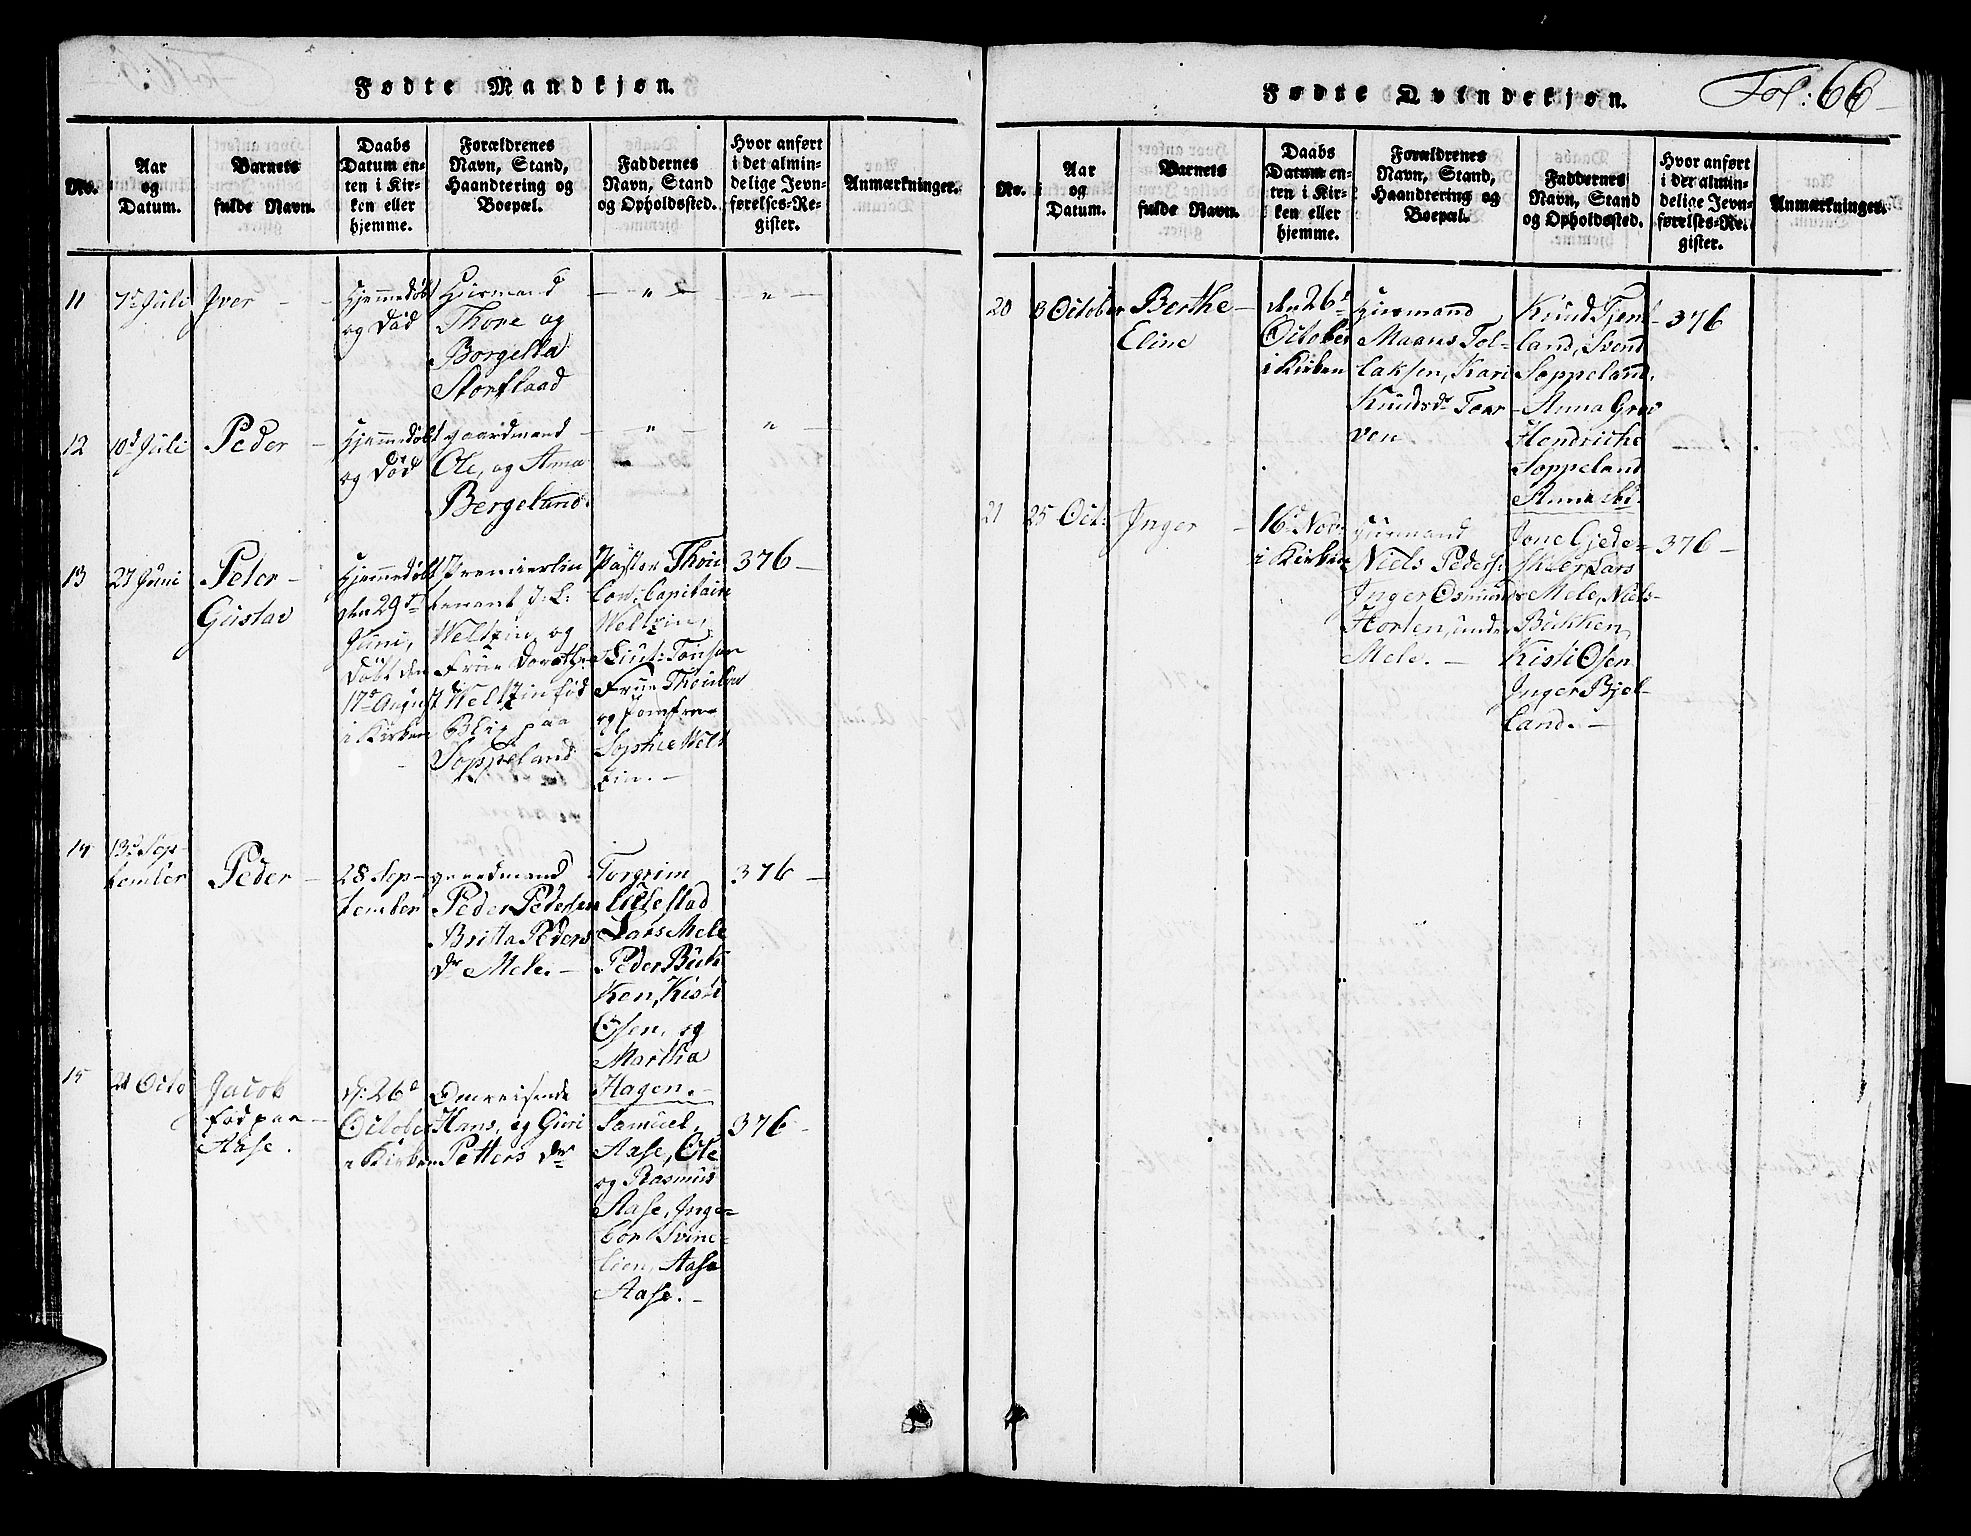 Fødte Mandkjøn.
No.
Aar
og
Datum.
Barnets
fulde Navn.
Daabs
Datum en-
ten i Kir-
ken eller
hjemme.
Forældrenes
Navn, Stand,
Haandtering og
Boepæl.
Faddernes
Navn, Stand
og Opholdssted.
Hvor anført
i det almin-
delige Jevn-
førelses-Re-
gister.
Anmærkninger.
11
7de Juli
Iver -
Hjemmedøbt
og Død
Huusmand
Thore og
Borgella
Storflaad
— " —
— " —
12
10d Juli
Peder -
Hjemmedøbt
og Død
gaardmand
Ole, og Anna
Bergeland.
— " —
— " —
13
27 Juni
Peter -
Gustav
Hjemmedøbt
den 29de
Juni,
Døbt den
17de August
i Kirken
Premierlieu
tenant J. L:
Weltzin og
Frue Dorothea
Weltzin fød
Blix paa
Soppeland
Pastor Thou
low, Capitain
Weltzin,
Lieut: Tonsen
Frue Thoulow
og Jomfrue
Sophie Welt
zin. -
376 -
14
13de Sep-
tember
Peder -
28 Sep-
tember
gaardmand
Peder Pedersen
Britta Peders
Dr Mele. -
Torgrim
Lillestad
Lars Mele
Peder Buk
ken, Kisti
Osen, og
Martha
Hagen. -
376 -
15
21 Octo
Jacob
fød paa -
Aase.
d: 26de
October
i Kirken
Omreisende
Hans, og Guri
Petters Dr
Samuel,
Aase, Ole
og Rasmus
Aase, Inge-
bor Svine-
lien, Aasa
Aase. -
376 -
Fødte Qvindekjøn.
Fol: 66 -
No.
Aar
og
Datum.
Barnets
fulde Navn.
Daabs
Datum en-
ten i Kir-
ken eller
hjemme.
Forældrenes
Navn, Stand,
Haandtering og
Boepæl.
Faddernes
Navn, Stand
og Opholdssted.
Hvor anført
i det almin-
delige Jevn-
førelses-Re-
gister.
Anmærkninger.
20
3 October
Berthe -
Eline
den 26de
October
i Kirken
Huusmand
Maans Tol-
laksen, Kari
Knudsdr Toar
ven
Knud Tjent
land, Svend
Soppeland,
Anna Grov
Hendriche
Soppeland
Anna ibd.
376
21
25 Oct:
Inger -
16de Nov:
i Kirken
Huusmand
Niels Peders:
Inger Osmunds
Horten, under
Mele. -
Jone Gjede-
Lars
Mele, Niels
Bukken,
Kisti Osen
Inger Bjel-
land. -
376 -